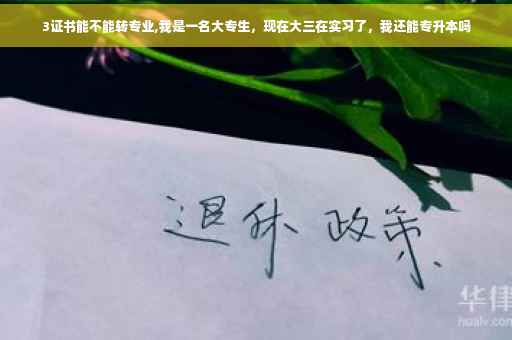 3证书能不能转专业,我是一名大专生，现在大三在实习了，我还能专升本吗
退休 政策
华律
hualv.com